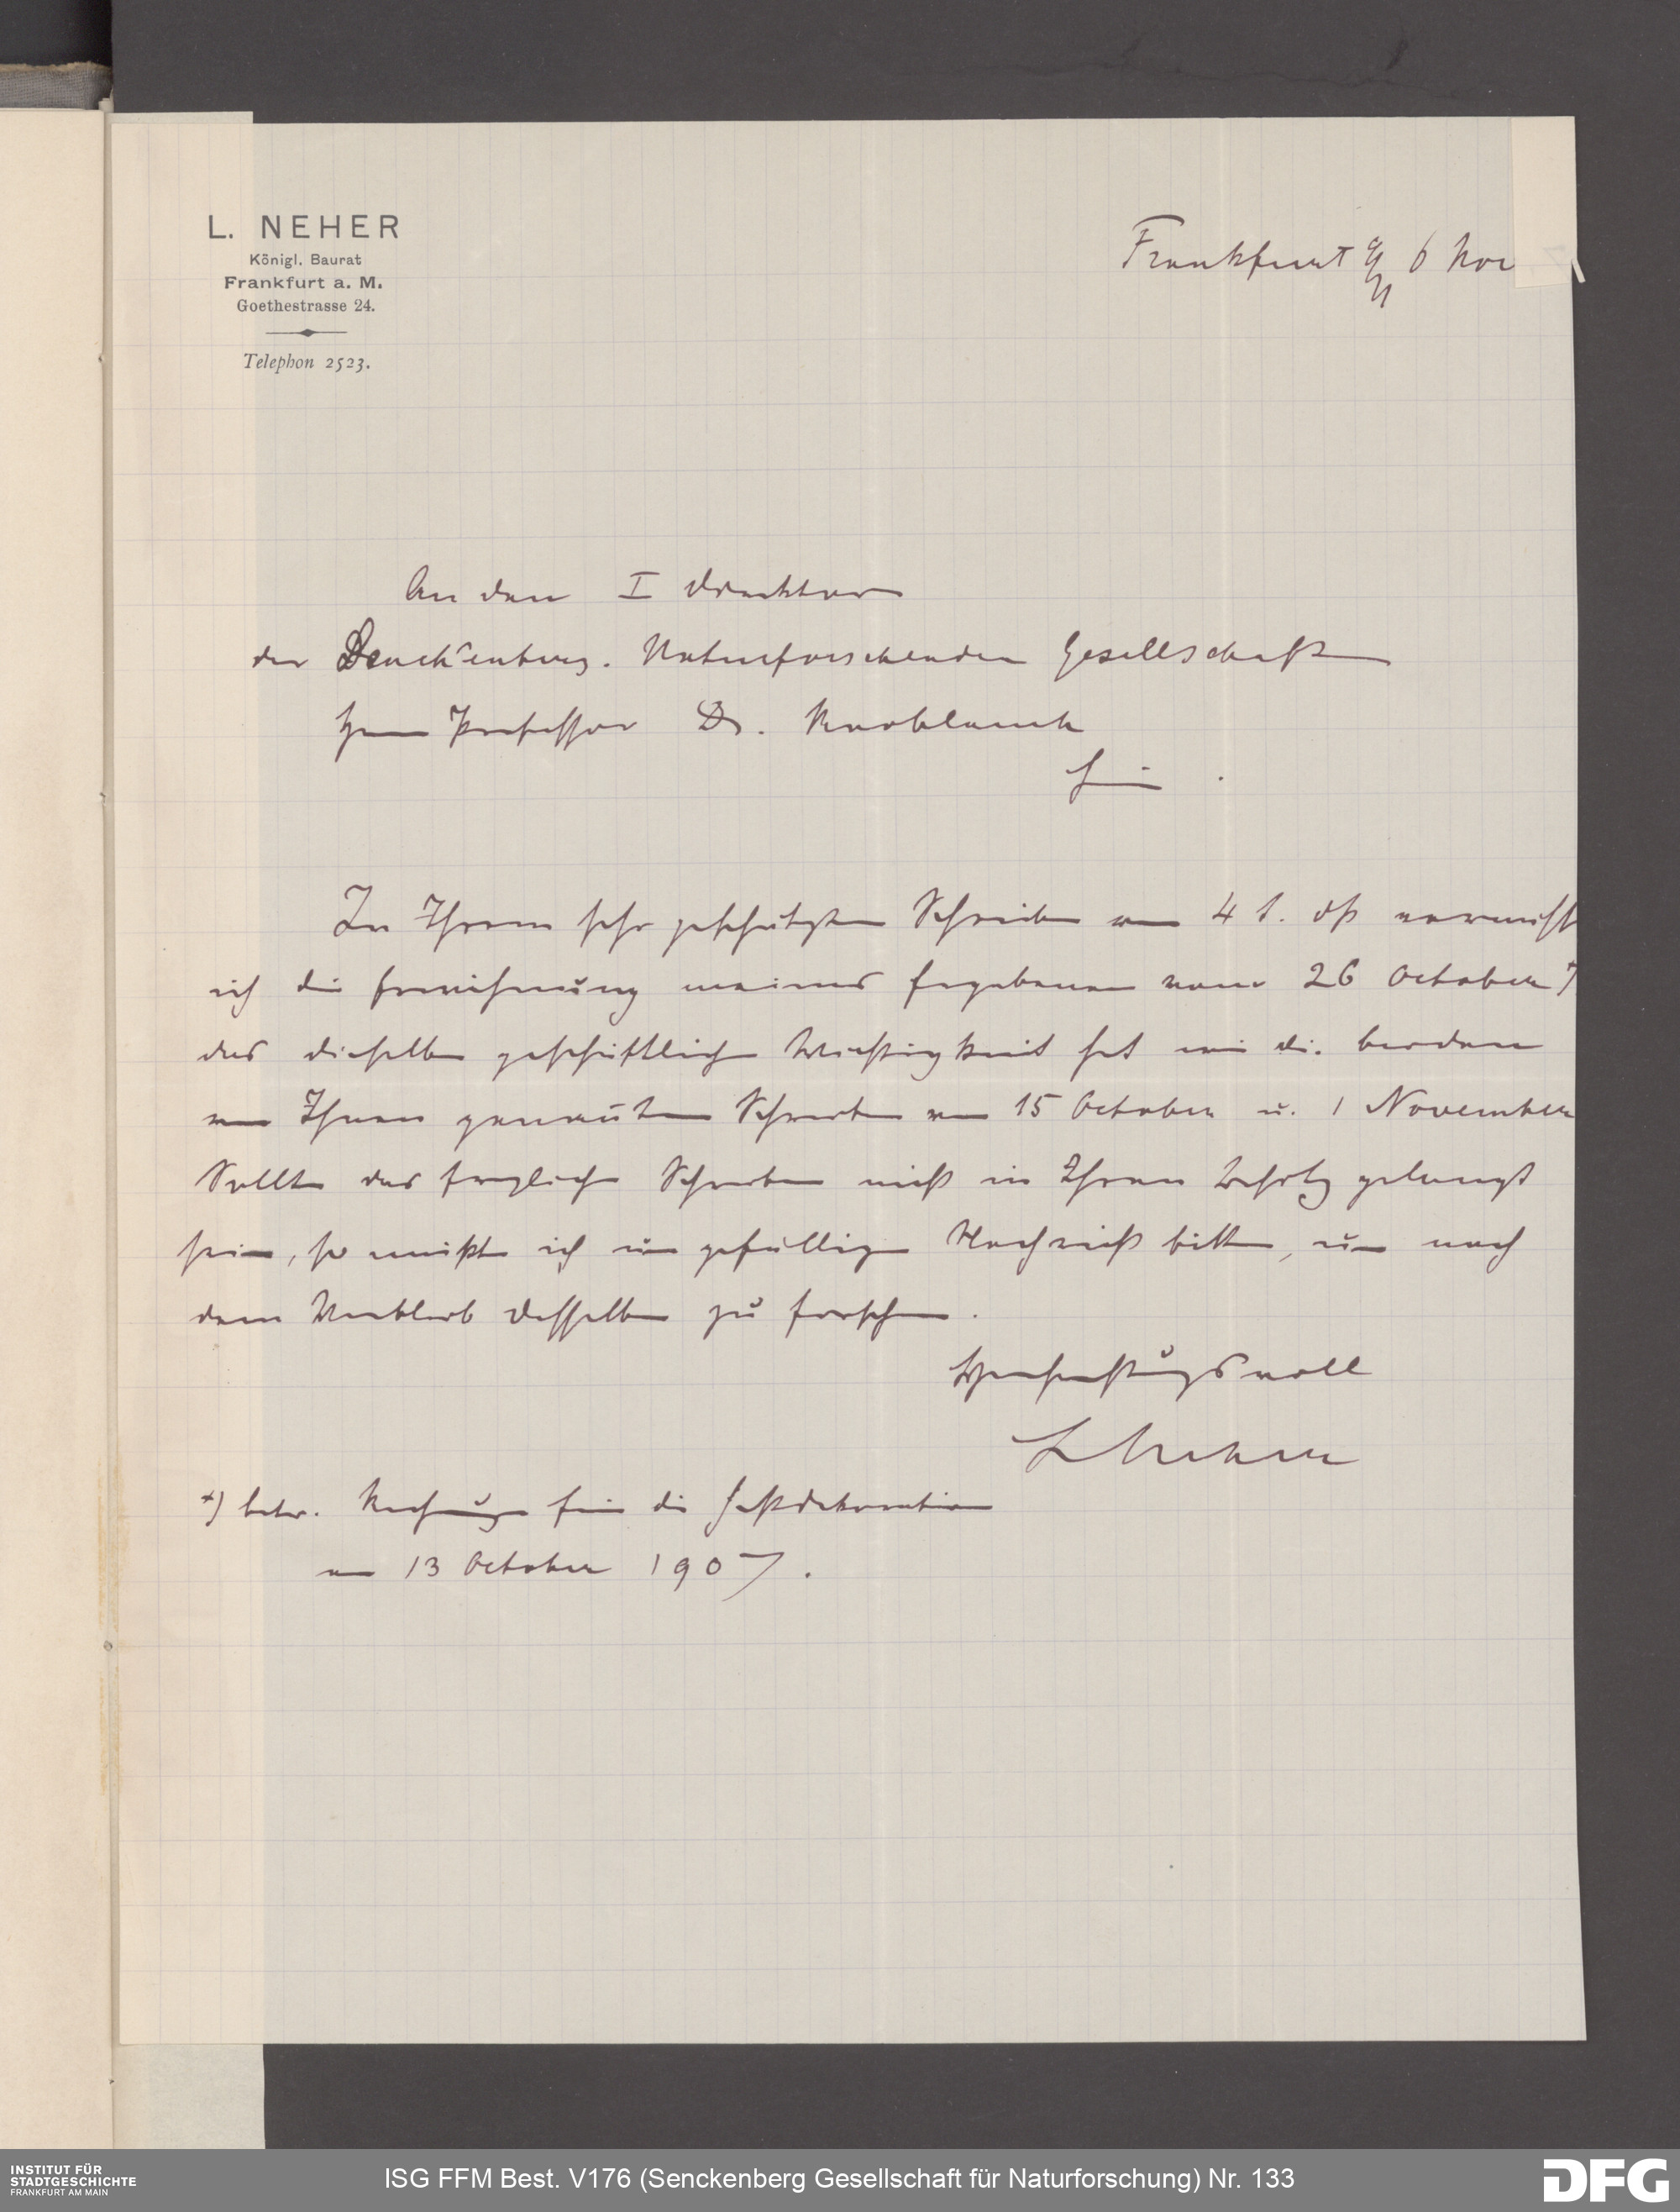 L. NEHER
Königl. Baurat
Frankfurt a. M.
Goethestrasse 24.
Telephon 2523.
Frankfurt a/M 6 Nov
An den I Direktor
der Senckenberg. Naturforschenden Gesellschaft
Herrn Professor Dr. Knoblauch
Hier.
In Ihrem sehr geschätzten Schreiben vom 4 d. Mts vermisse
ich die Erwähnung meines Ergebenen vom 26 October *)
das dieselbe geschäftliche Wichtigkeit hat wie die beiden
von Ihnen genannten Schreiben vom 15 October u. 1 November
Sollte das fragliche Schreiben nicht in Ihren Besitz gelangt
sein, so müßte ich um gefällige Nachricht bitten, um nach
dem Verbleib desselben zu forschen.
Hochachtungsvoll
L Neher
*) betr. Rechnungen für die Festdekoration
am 13 October 1907.
INSTITUT FÜR
STADTGESCHICHTE
FRANKFURT AM MAIN
ISG FFM Best. V176 (Senckenberg Gesellschaft für Naturforschung) Nr. 133
DFG